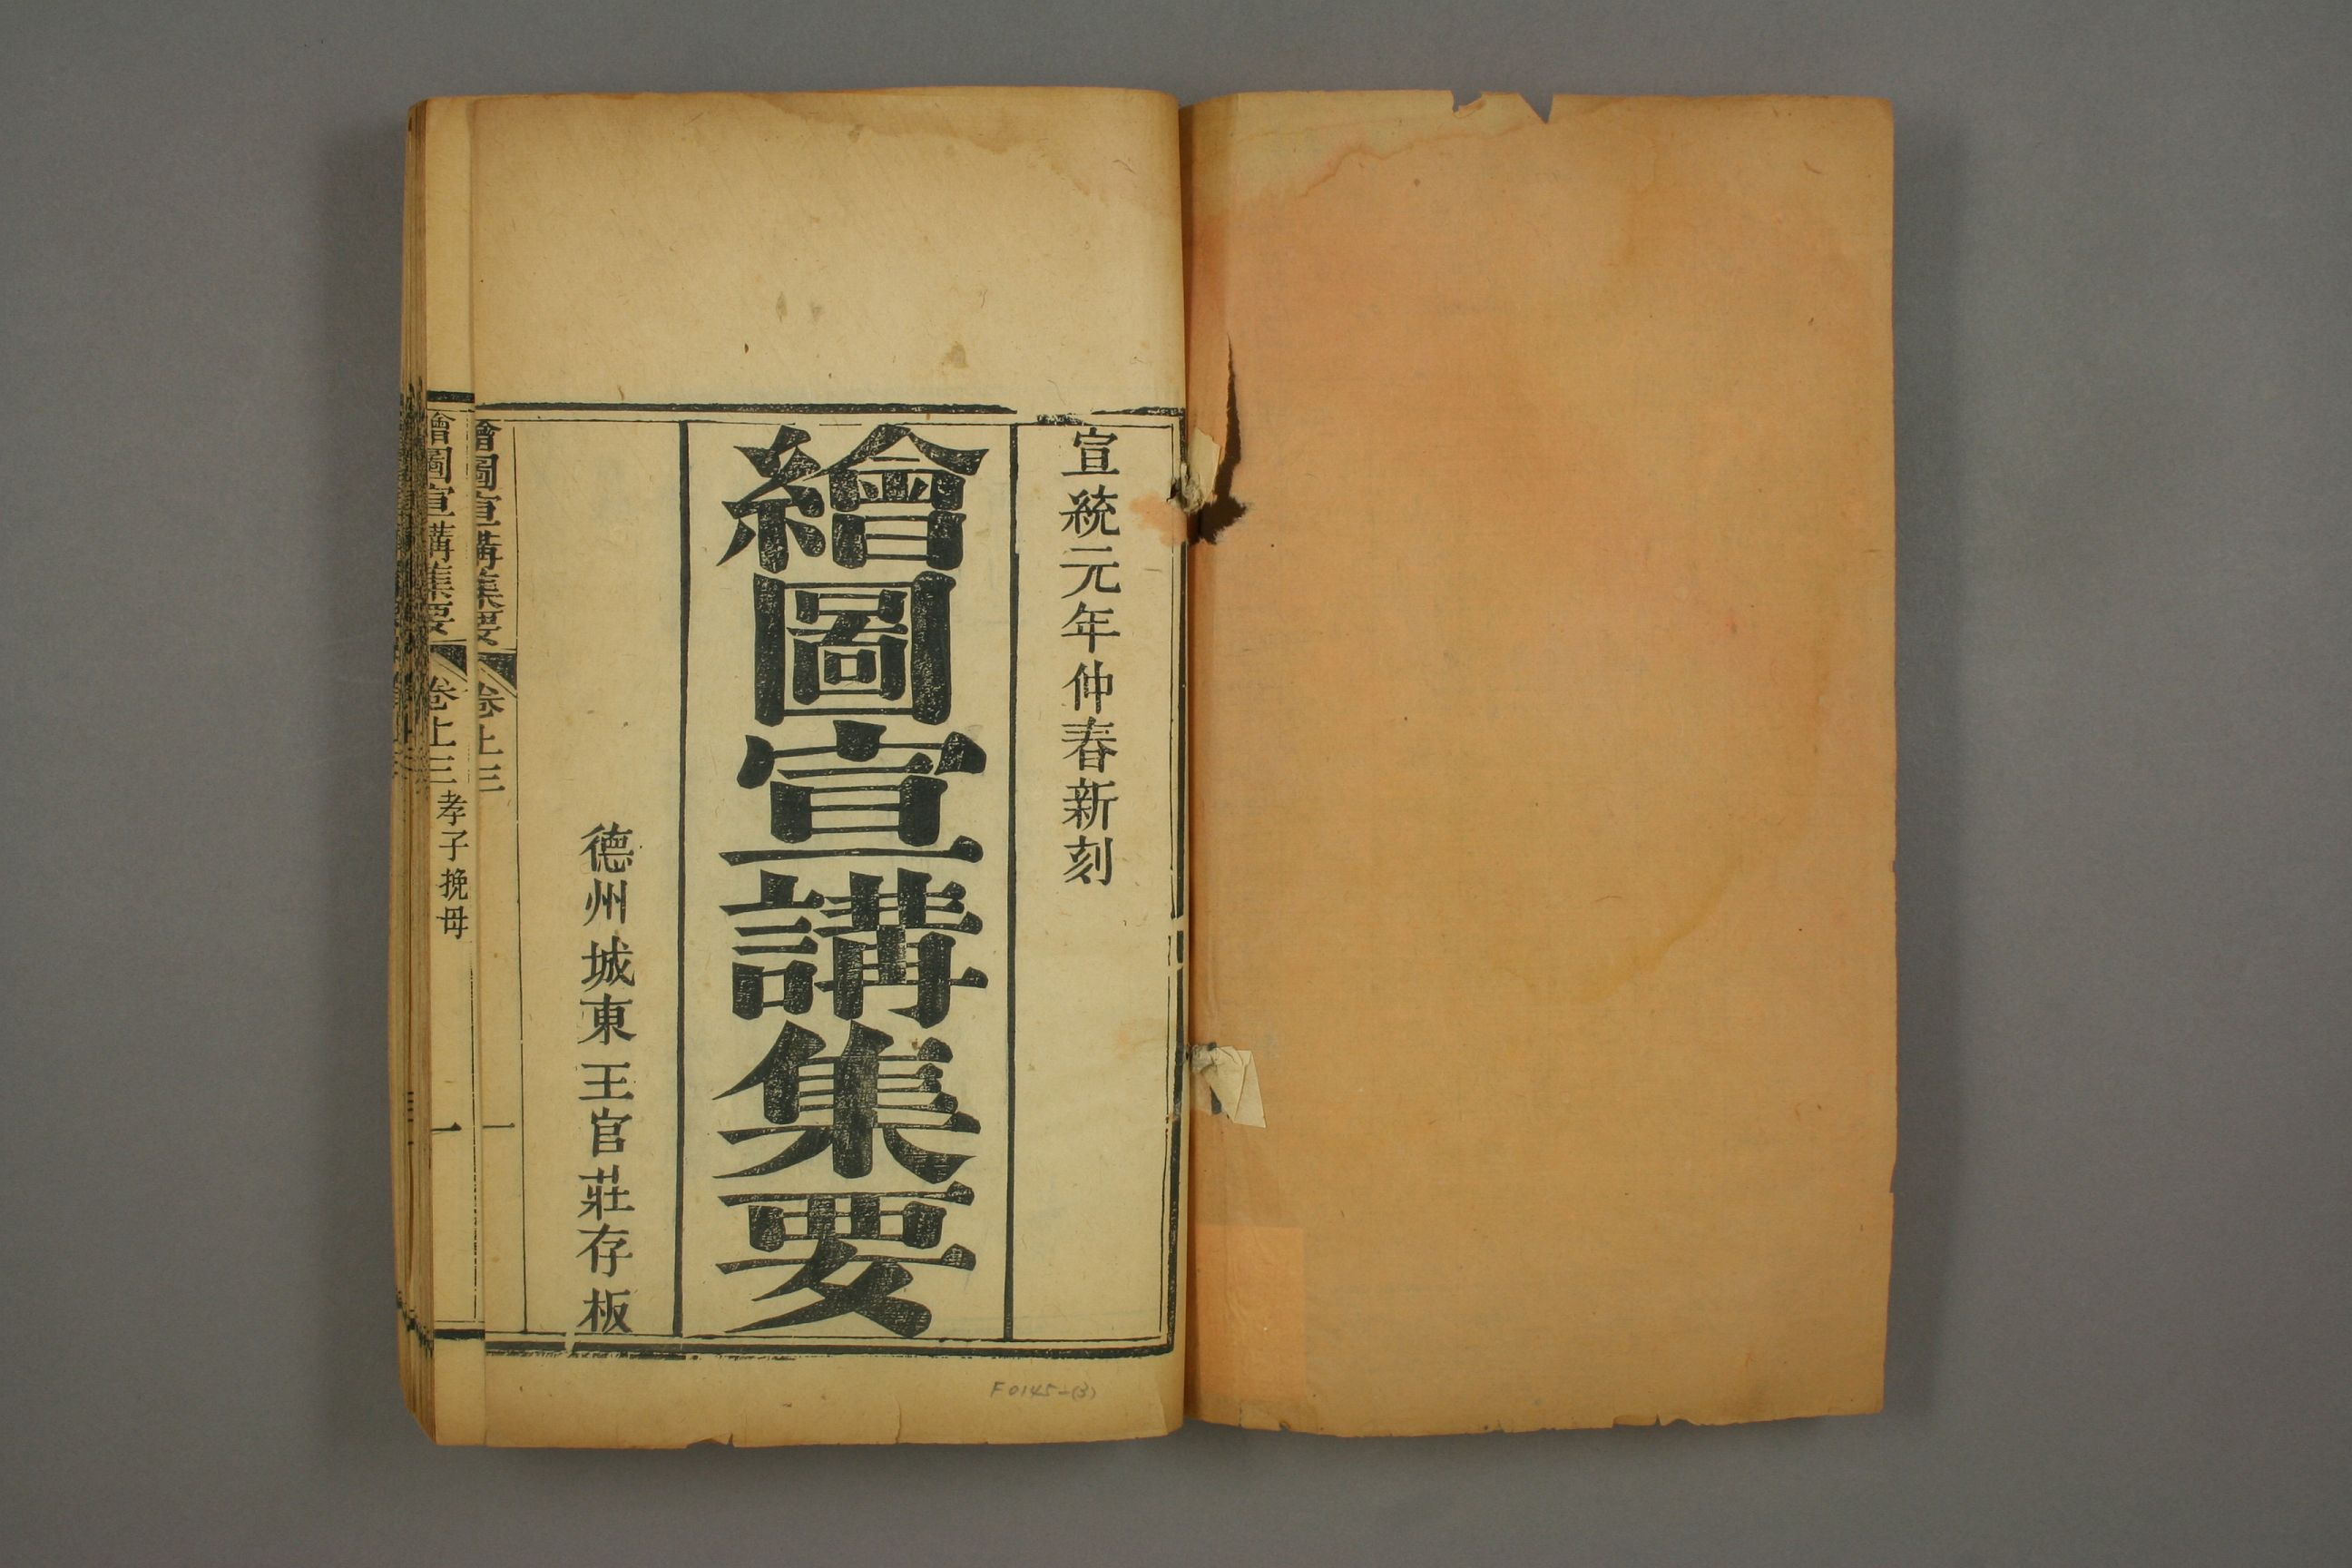 宣統元年仲春新刻
繪圖宣講集要
德州城東王官莊存板
繪圖宣講集要 卷上三 一
繪圖宣講集要 卷上三 孝子挽母 一
F0145-(3)